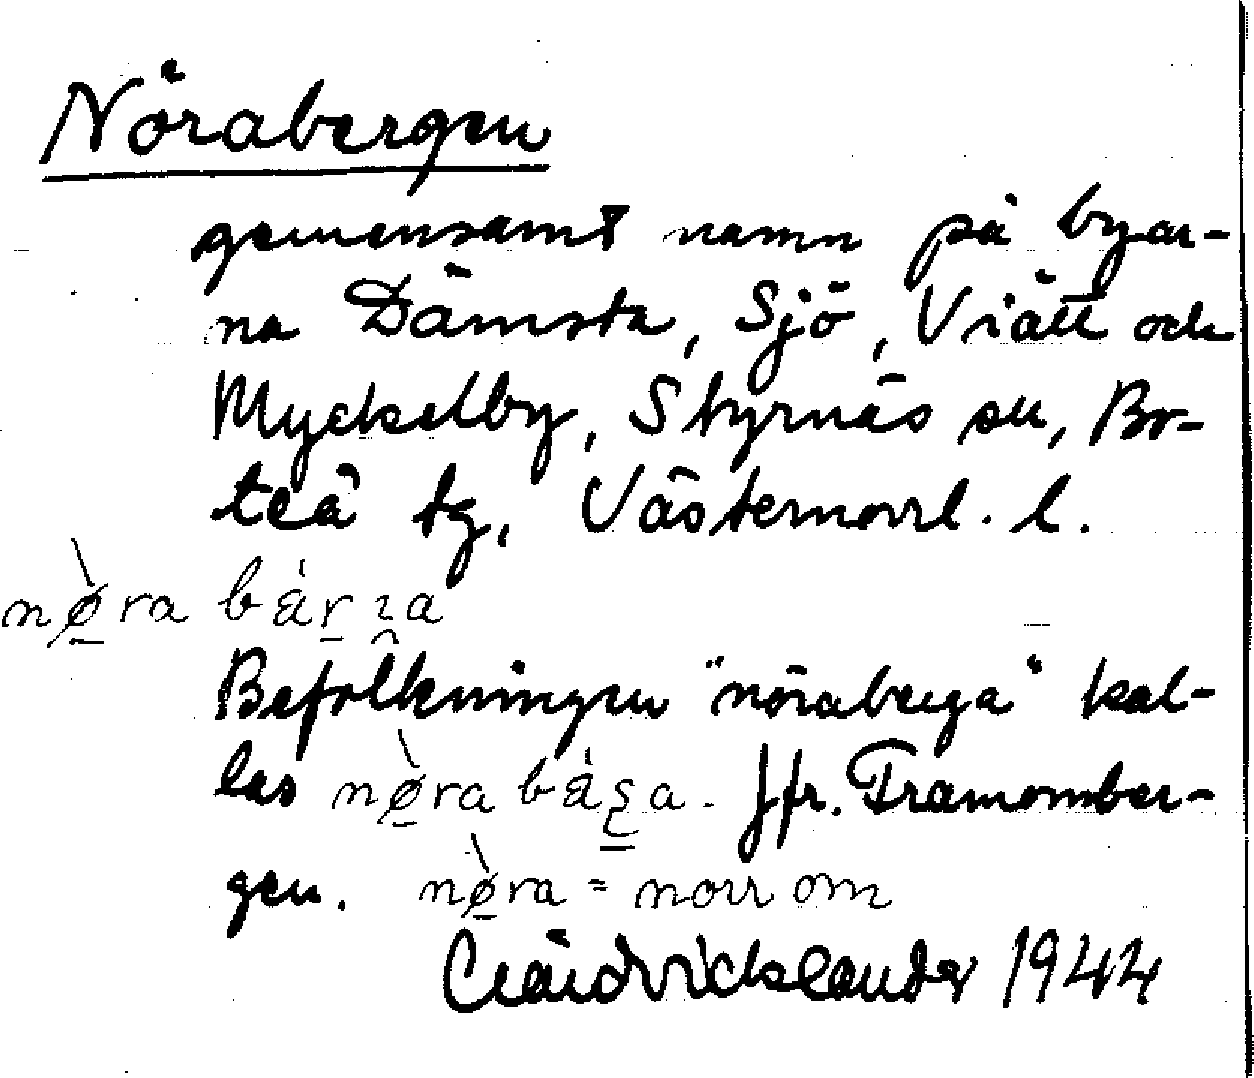 Nörabergen
gemensamt namn på byar-
na Dämsta, Sjö, Viätt och
Myckelby, Styrnäs sn, Bo-
teå tg, Västernorrl. l.
nø̀ra bärɿa
Befolkningen "nöraberga" kal-
las nø̀ra bä̀ʂa. Jfr. Tramomber-
gen. nø̀ra = norr om
Wicklander 1944